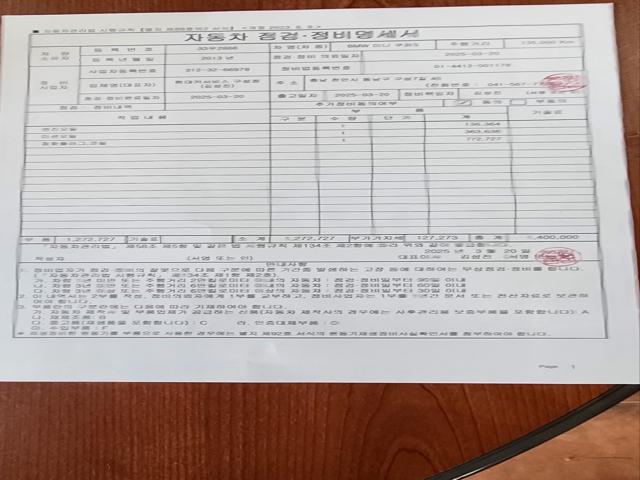 자동차 점검·정비명세서
차량 소유자 등록번호 차명(차종) BMW 미니 쿠퍼S 주행거리 135,000 Km
등록년월일 2013 년 점검·정비 의뢰일자 2025-03-20
정비 사업자 사업자등록번호 312-32-66978 정비업등록번호 01-4413-001178
업체명(대표자) 현대카서비스 구성점 (김성진) 주소 충남 천안시 동남구 구성7길 45
(전화번호 : 041-567-
점검·정비완료일자 2025-03-20 출고일자 2025-03-20 정비책임자 김성진
점검 · 정비내역 추가정비동의여부 동의 부동의
작업내용 부품 기술료
구분 수량 단가 계
엔진오일 1 136,364
미션오일 1 363,636
점화플러그,코일 1 772,727
부품 1,272,727 기술료 소계 1,272,727 부가가치세 127,273 총계 1,400,000
「자동차관리법」 제58조 제5항 및 같은 법 시행규칙 제134조 제2항에 따라 위와 같이 발급합니다.
2025년 3월 20일
작성자 (서명 또는 인) 대표이사 김성진
안내사항
1. 정비업자가 점검·정비의 잘못으로 다음 구분에 따른 기간중 발생하는 고장 등에 대하여는 무상점검·정비를 합니다.
(「자동차관리법 시행규칙」 제134조 제1항 제2호).
가. 차령 1년 미만 또는 주행거리 2만킬로미터 이내의 자동차 : 점검·정비일부터 90일 이내
나. 차령 3년 미만 또는 주행거리 6만킬로미터 이내의 자동차 : 점검·정비일부터 60일 이내
다. 차령 3년 이상 또는 주행거리 6만킬로미터 이상의 자동차 : 점검·정비일부터 30일 이내
2. 이 내역서는 2부를 작성, 정비의뢰자에게 1부를 교부하고, 정비사업자는 1부를 1년간 문서 또는 전산자료로 보관하여야 합니다.
3. 부품란의 구분란에는 다음에 따라 기재하여야 합니다.
가. 자동차 제작사 및 부품업체가 공급하는 신품(자동차 제작사의 경우에는 사후관리용 보증부품을 포함합니다): A
나. 재제조품 : B
다. 중고품(재생품을 포함합니다) : C 라. 인증대체부품 : D
마. 수입부품 : F
Page 1